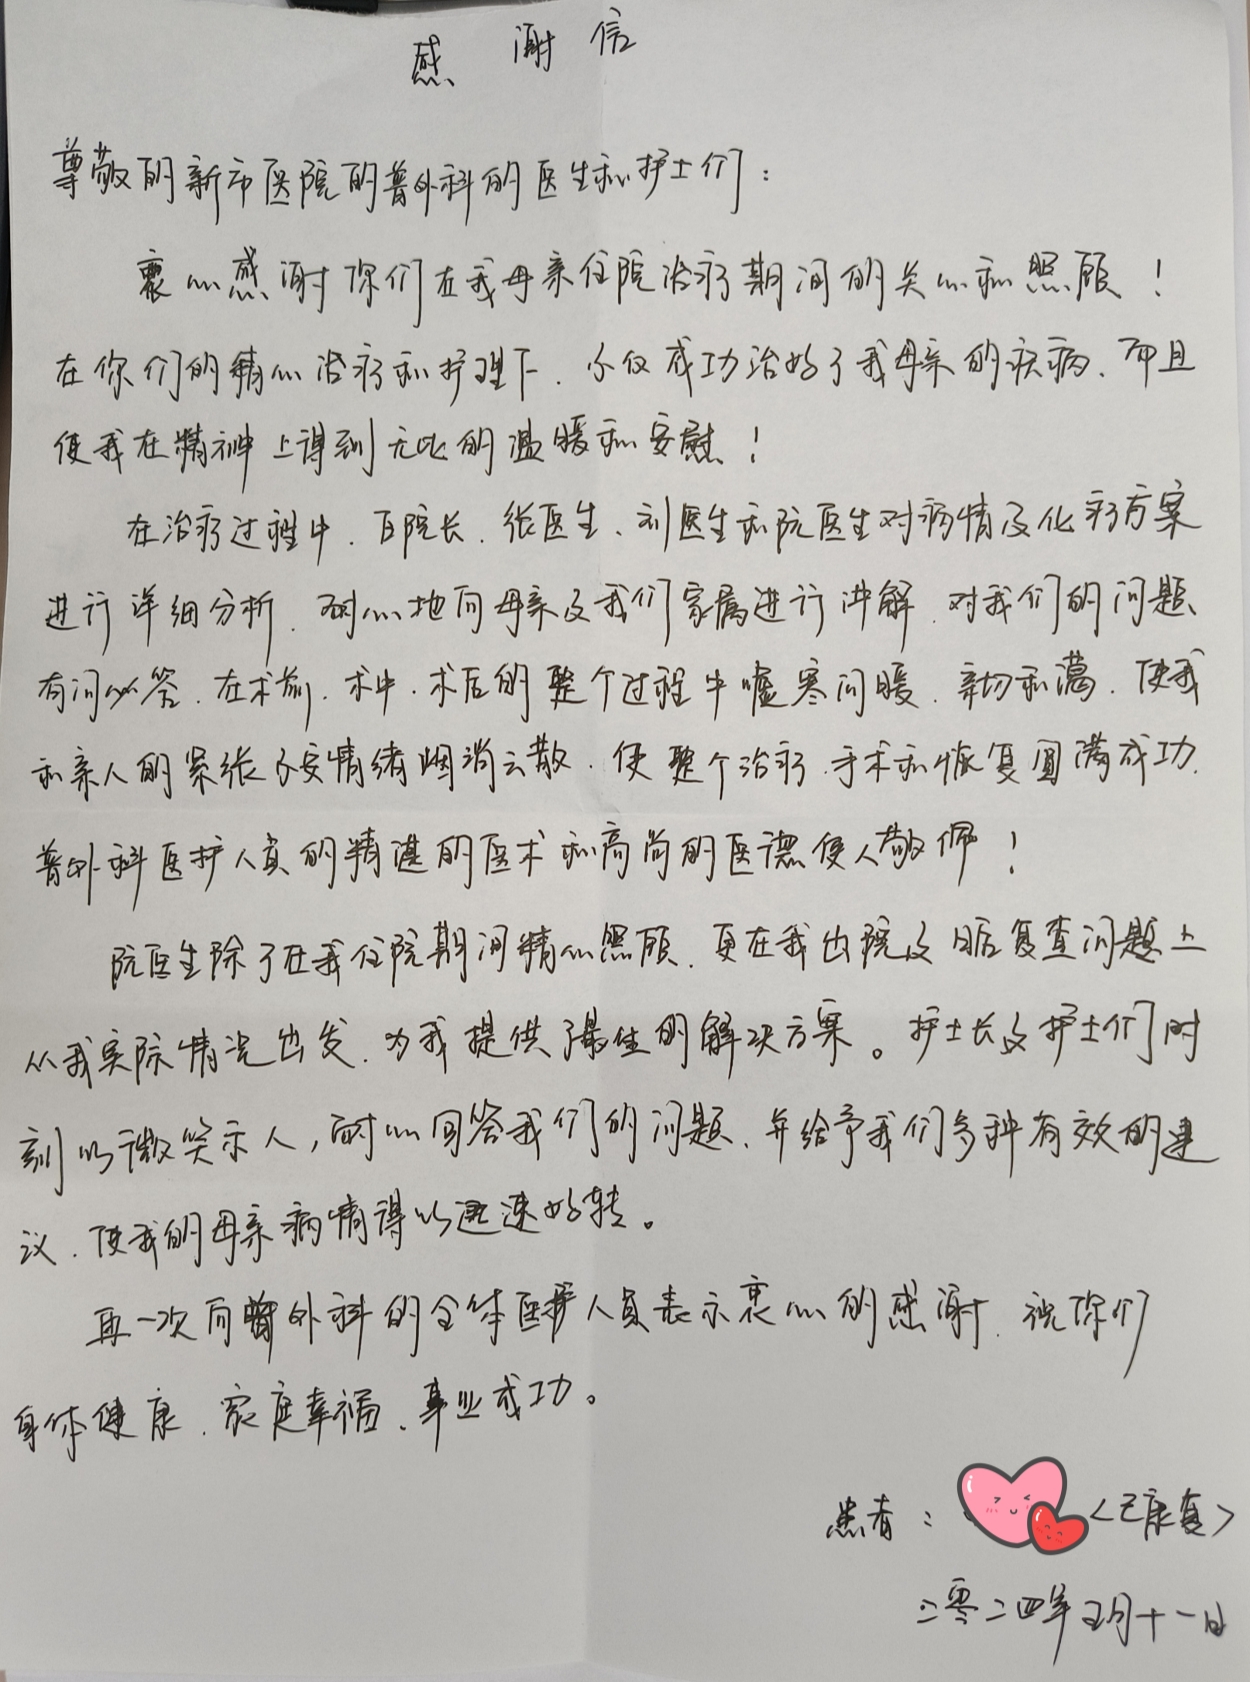 感谢信
尊敬的新市医院的普外科的医生和护士们：
衷心感谢你们在我母亲住院治疗期间的关心和照顾！
在你们的精心治疗和护理下、不仅成功治好了我母亲的疾病、而且
使我在精神上得到无比的温暖和安慰！
在治疗过程中、百院长、张医生、刘医生和阮医生对病情及化疗方案
进行详细分析、耐心地向母亲及我们家属进行讲解、对我们的问题
有问必答、在术前、术中、术后的整个过程中嘘寒问暖、亲切和蔼、使我
和亲人的紧张不安情绪烟消云散、使整个治疗、手术和恢复圆满成功、
普外科医护人员的精湛的医术和高尚的医德使人敬佩！
阮医生除了在我住院期间精心照顾、更在我出院及日后复查问题上
从我实际情况出发、为我提供了最佳的解决方案。护士长及护士们时
刻以微笑示人，耐心回答我们的问题、并给予我们多种有效的建
议、使我的母亲病情得以迅速好转。
再一次向普外科的全体医护人员表示衷心的感谢、祝你们
身体健康、家庭幸福、事业成功。
患者：<已康复>
二零二四年五月十一日